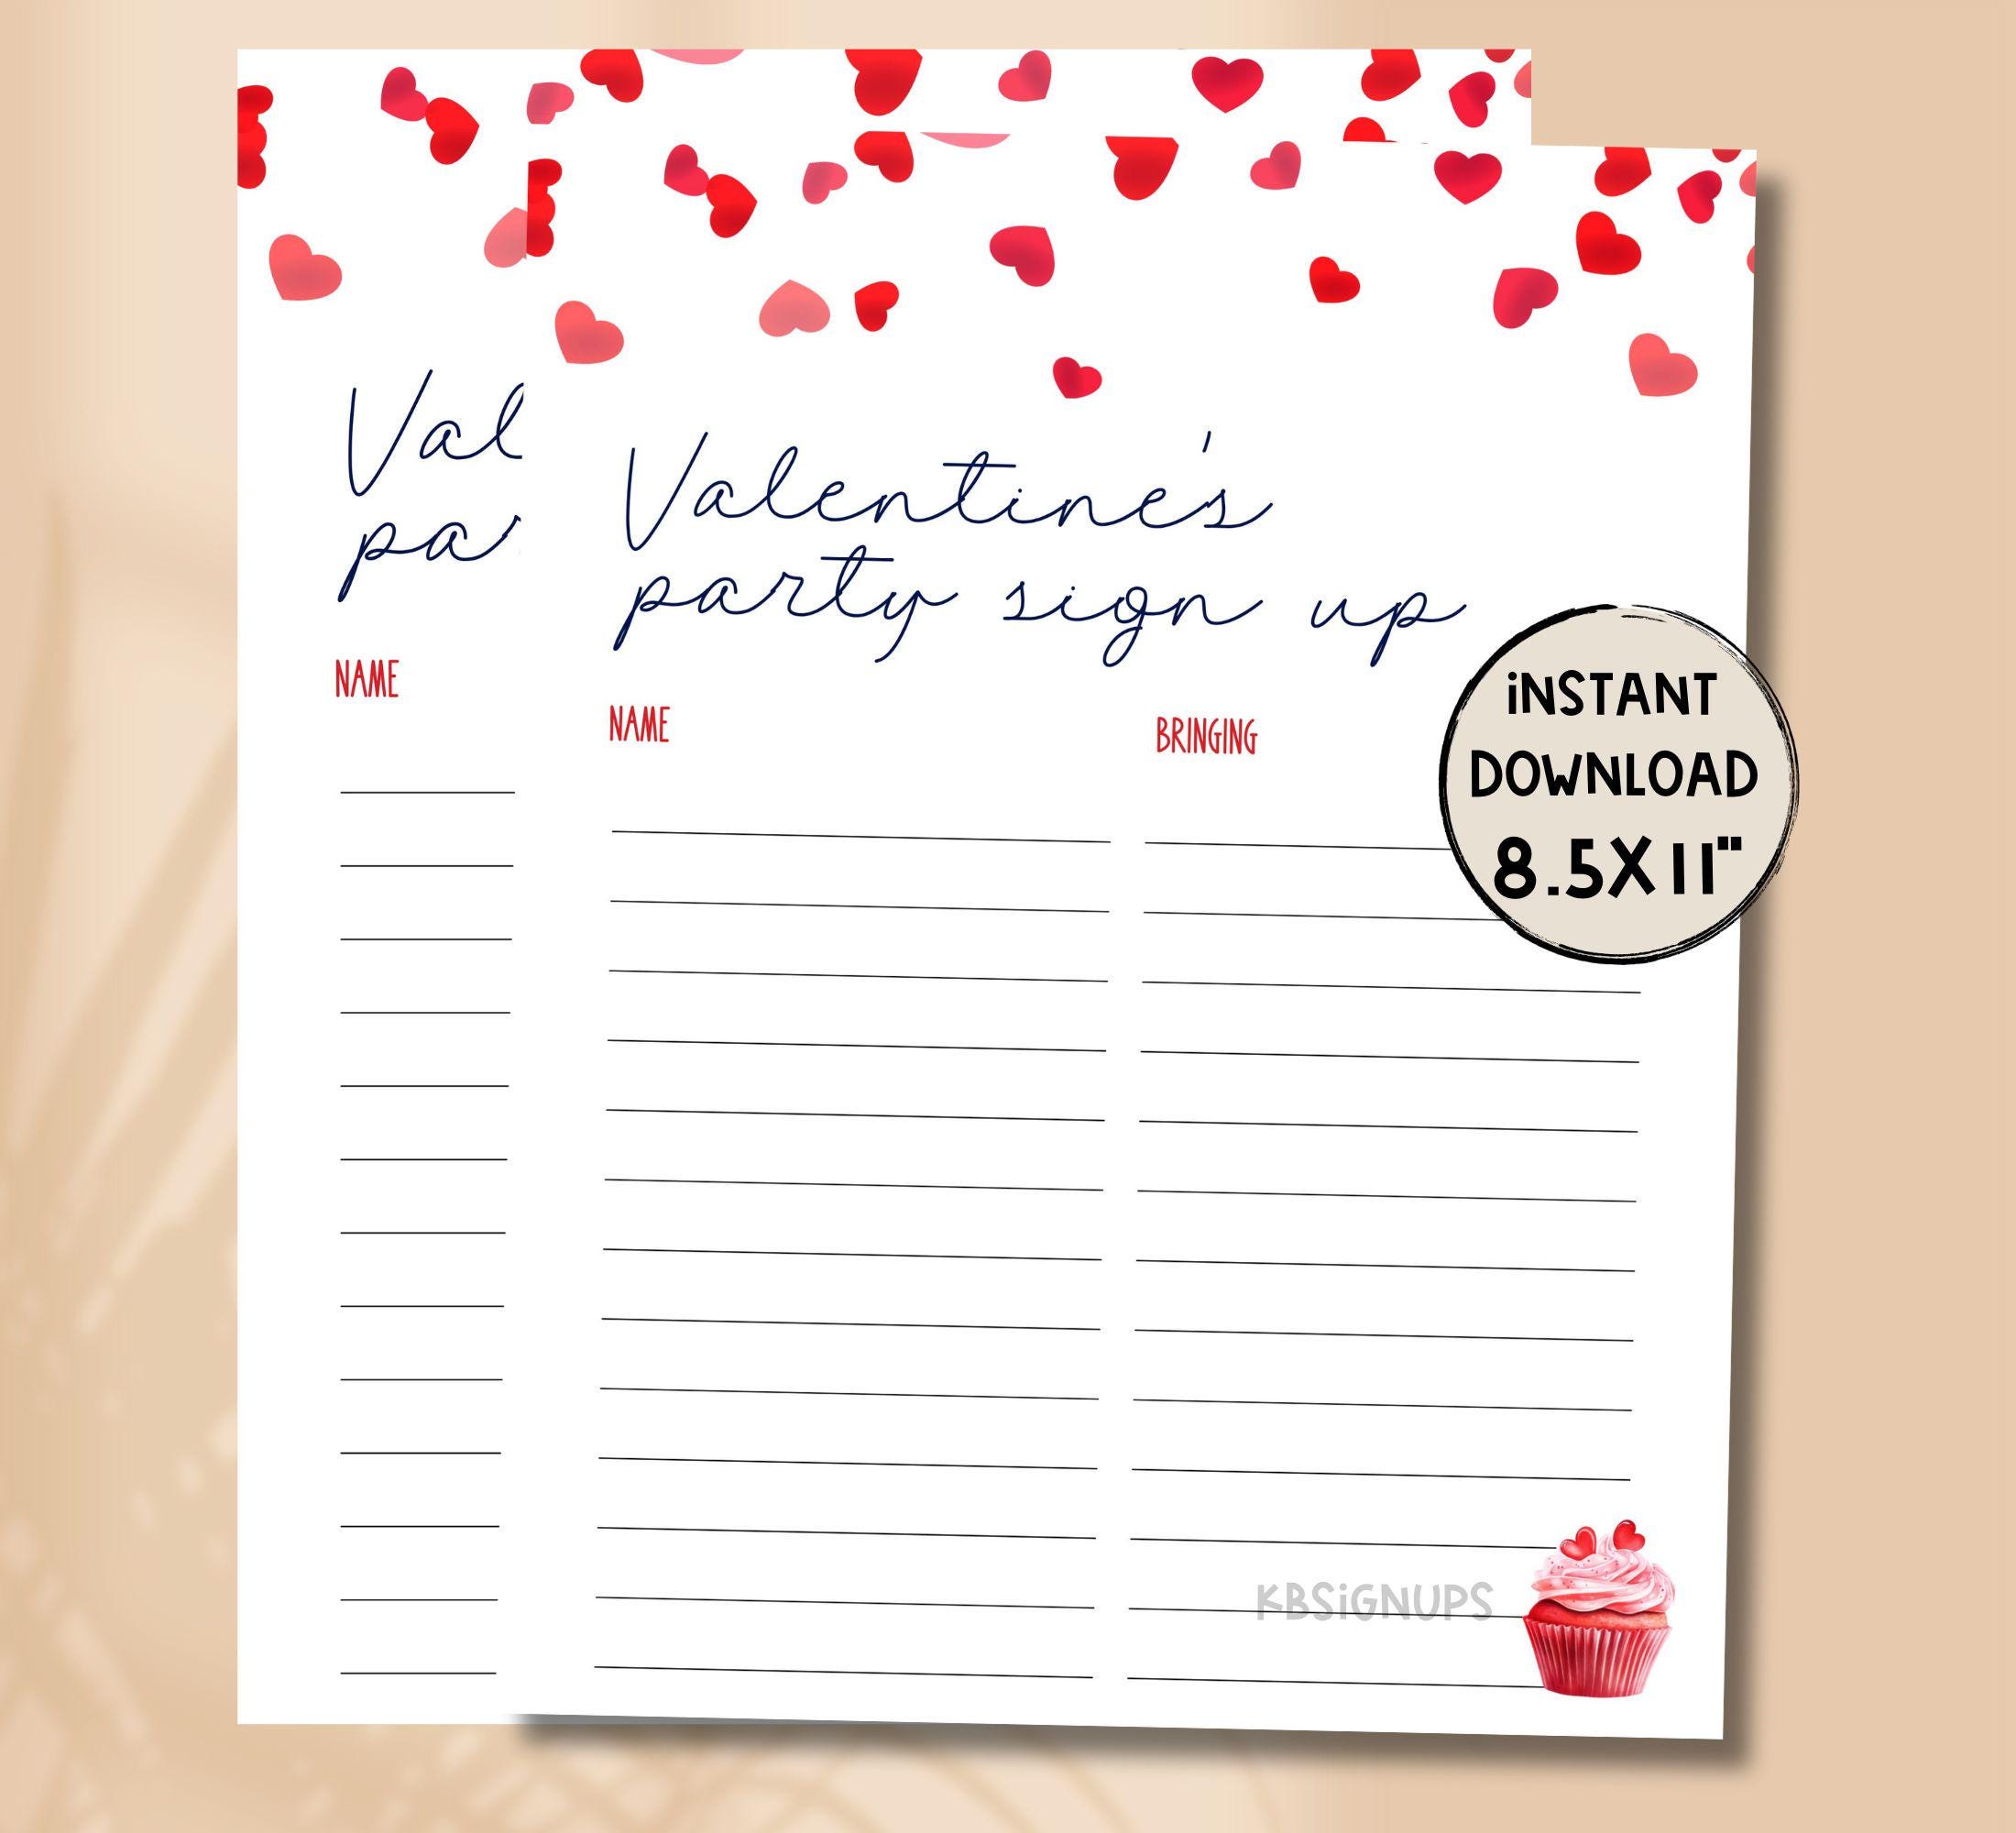 Val
pa
NAME
Valentine's
party sign up
NAME
BRINGING
iNSTANT
DOWNLOAD
8.5X11"
KBSiGNUPS